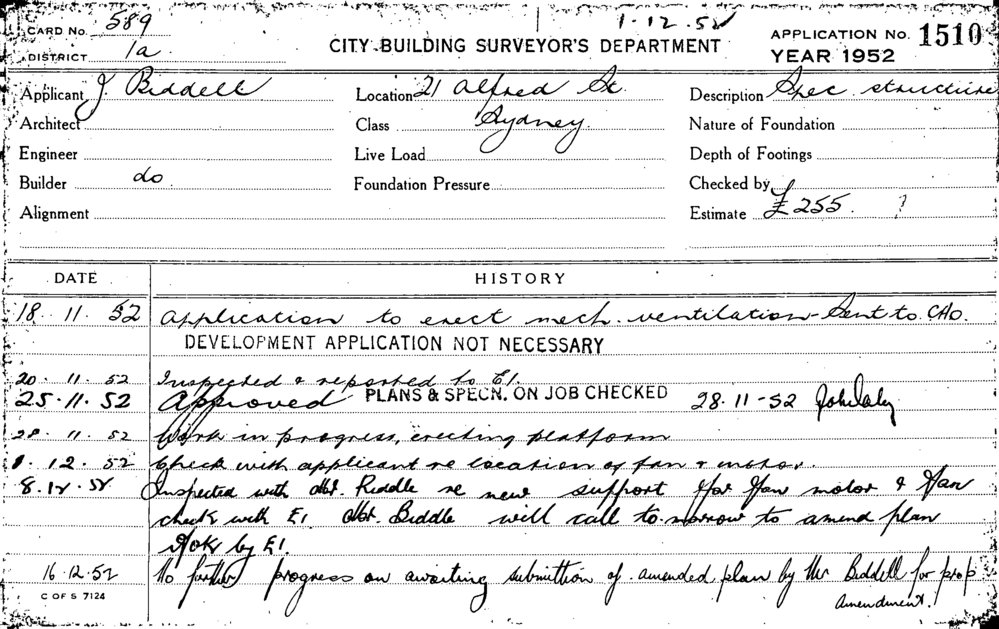 CARD No. 589
1.12.52
APPLICATION No. 1510
DISTRICT 1a
CITY BUILDING SURVEYOR'S DEPARTMENT
YEAR 1952
Applicant J Biddell
Location 21 Alfred St.
Description Spec. structure
Architect
Class Sydney.
Nature of Foundation
Engineer
Live Load
Depth of Footings
Builder do
Foundation Pressure
Checked by
Alignment
Estimate £255. ?
DATE
HISTORY
18.11.52 Application to erect mech. ventilation - Sent to CHO.
DEVELOPMENT APPLICATION NOT NECESSARY
20.11.52 Inspected & reported to E1.
25.11.52 Approved PLANS & SPECN. ON JOB CHECKED 28.11-52 John Daly
28.11.52 Work in progress, erecting platform
1.12.52 Check with applicant re location of fan & motor.
8.12.52 Inspected with Mr. Riddle re new support for fan motor & fan
check with E1. Mr. Biddle will call to-morrow to amend plan
by E1.
16.12.52 No further progress on awaiting submittion of amended plan by Mr Biddell for prop
amendment.
C OF S 7124